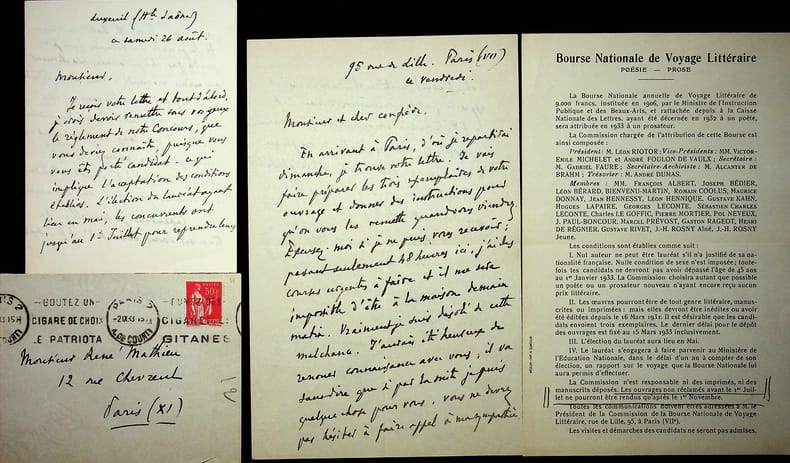 Luxeuil (Hte Saône)
ce samedi 26 août.
Monsieur,
Je reçois votre lettre et tout d'abord,
je crois devoir remettre sous vos yeux
le règlement de notre Concours, que
vous devez connaître, puisque vous
vous êtes porté candidat – ce qui
implique l'acceptation des conditions
établies. L'élection du lauréat ayant
lieu en mai, les concurrents ont
jusqu'au 1er Juillet pour reprendre leurs
PARIS 2
–GOUTEZ UN–
CIGARE DE CHOIX
LE PATRIOTA
50c
CIGARE
GITANES
Monsieur René Mathieu
12 rue Chevreul
Paris (XI)
95 rue de Lille. Paris (VII)
ce vendredi.
Monsieur et cher confrère.
En arrivant à Paris, d'où je repartirai
dimanche, je trouve votre lettre. Je vais
faire préparer les trois exemplaires de votre
ouvrage et donner des instructions pour
qu'on vous les remette quand vous viendrez.
Excusez-moi si je ne puis vous recevoir ;
passant seulement 48 heures ici, j'ai des
courses urgentes à faire et il me sera
impossible d'être à la maison demain
matin. Vraiment je suis désolé de cette
malchance. J'aurais été heureux de
faire connaissance avec vous ; il va
sans dire que si par la suite je puis
quelque chose pour vous, vous ne devrez
pas hésiter à faire appel à ma sympathie
Bourse Nationale de Voyage Littéraire
POÉSIE – PROSE
La Bourse Nationale annuelle de Voyage Littéraire de
9.000 francs, instituée en 1906, par le Ministre de l'Instruction
Publique et des Beaux-Arts, et rattachée depuis à la Caisse
Nationale des Lettres, ayant été décernée en 1932 à un poète,
sera attribuée en 1933 à un prosateur.
La Commission chargée de l'attribution de cette Bourse est
ainsi composée :
Président : M. LÉON RIOTOR ; Vice-Présidents : MM. VICTOR-
EMILE MICHELET et ANDRÉ FOULON DE VAULX ; Secrétaire :
M. GABRIEL FAURE ; Secrétaire-Archiviste : M. ALCANTER DE
BRAHM ; Trésorier : M. ANDRÉ DUMAS.
Membres : MM. FRANÇOIS ALBERT, JOSEPH BÉDIER,
LÉON BÉRARD, BIENVENU-MARTIN, ROMAIN COOLUS, MAURICE
DONNAY, JEAN HENNESSY, LÉON HENNIQUE, GUSTAVE KAHN,
HUGUES LAPAIRE, GEORGES LECOMTE, SÉBASTIEN CHARLES
LECONTE, CHARLES LE GOFFIC, PIERRE MORTIER, POL NEVEUX,
J. PAUL-BONCOUR, MARCEL PRÉVOST, GASTON RAGEOT, HENRI
DE RÉGNIER, GUSTAVE RIVET, J.-H. ROSNY Aîné, J.-H. ROSNY
Jeune.
Les conditions sont établies comme suit :
I. Nul auteur ne peut être lauréat s'il n'a justifié de sa na-
tionalité française. Nulle condition de sexe n'est imposée ; tou-
tefois les candidats ne devront pas avoir dépassé l'âge de 45 ans
au 1er Janvier 1933. La Commission choisira autant que possible
un poète ou un prosateur nouveau n'ayant encore reçu aucun
prix littéraire.
II. Les œuvres pourront être de tout genre littéraire, manus-
crites ou imprimées : mais elles devront être inédites ou avoir
été éditées depuis le 16 Mars 1931. Il est désirable que les can-
didats envoient trois exemplaires. Le dernier délai pour le dépôt
des ouvrages est fixé au 15 Mars 1933 inclusivement.
III. L'élection du lauréat aura lieu en Mai.
IV. Le lauréat s'engagera à faire parvenir au Ministère de
l'Éducation Nationale, dans le délai d'un an à compter de son
élection, un rapport sur le voyage que la Bourse Nationale lui
aura permis d'effectuer.
La Commission n'est responsable ni des imprimés, ni des
manuscrits déposés. Les ouvrages non réclamés avant le 1er Juil-
let ne pourront être rendus qu'après le 1er Novembre.
Toutes les communications doivent être adressées à M. le
Président de la Commission de la Bourse Nationale de Voyage
Littéraire, rue de Lille, 95, à PARIS (VIIe).
Les visites et démarches des candidats ne seront pas admises.